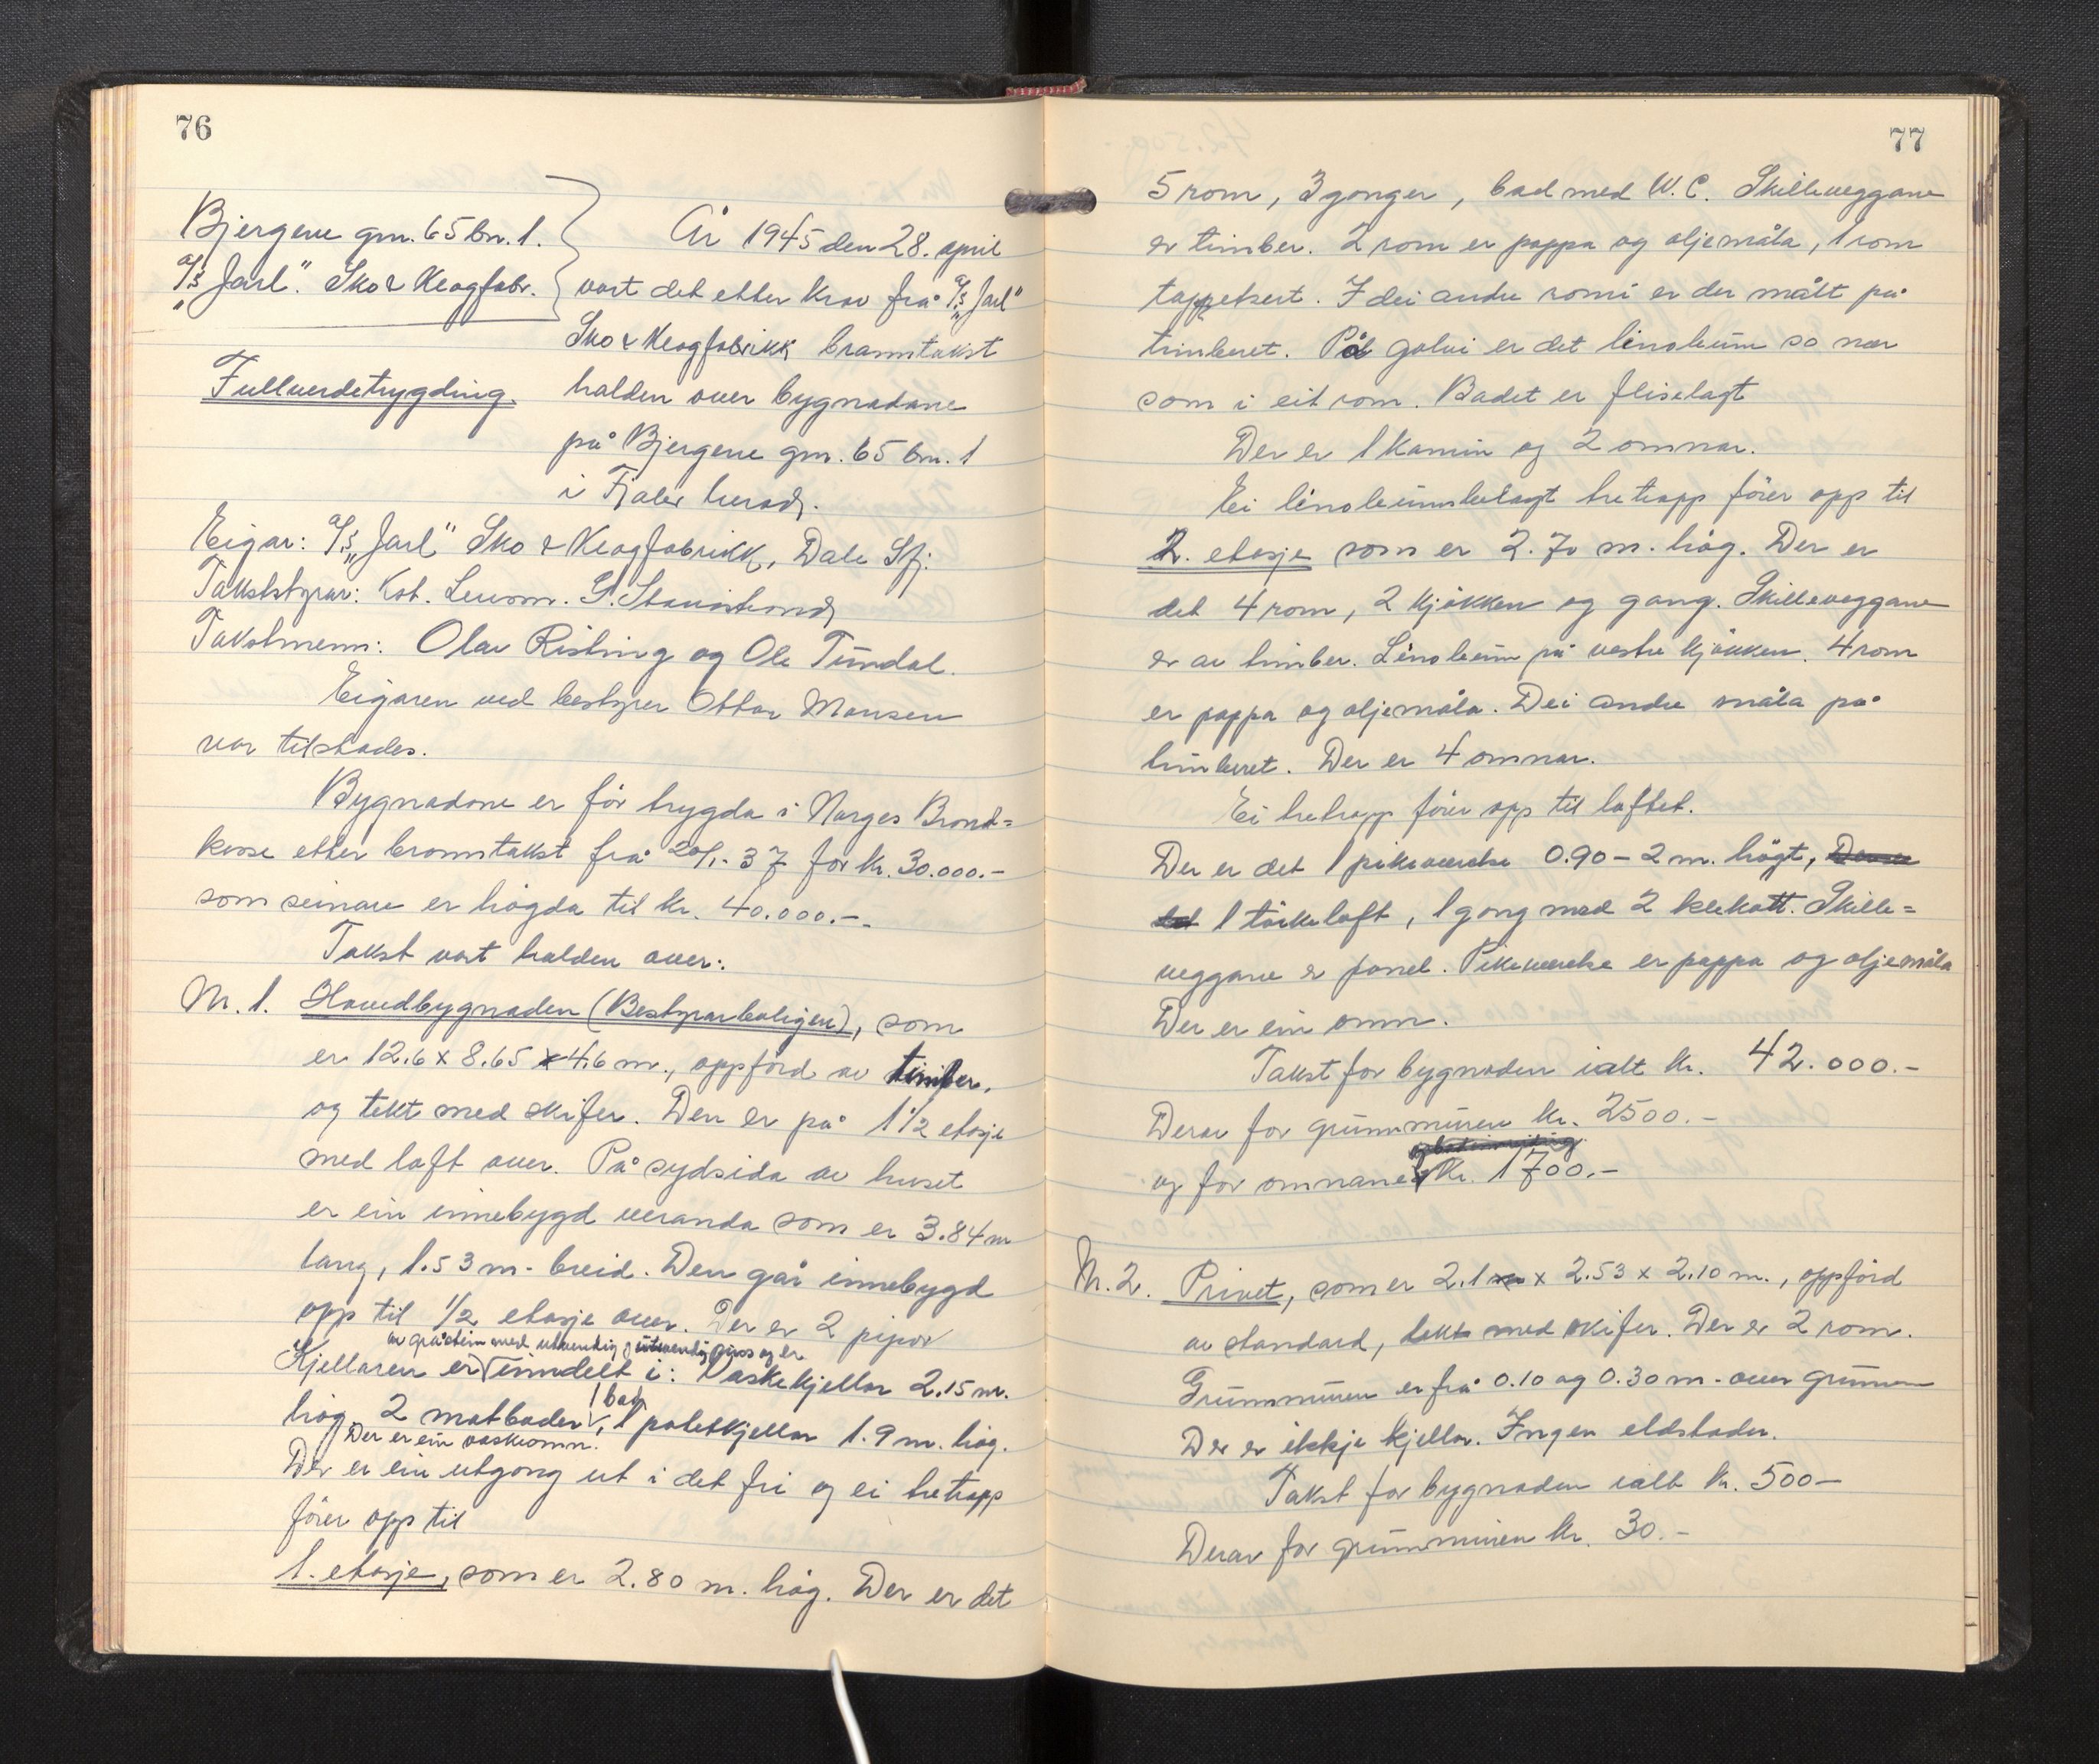 76
Bjergene gnr. 65 bn. 1.
A/S „Jarl". Sko & Keogfabr.
Fullverdetrygding.
År 1945 den 28. april
vart det etter krav frå A/S „Jarl"
Sko & Keogfabrikk branntakst
halden over bygnadane
på Bjergene gnr. 65 bnr. 1
i Fjaler herad.
Eigar: A/S „Jarl" Sko & Keogfabrikk, Dale Sfj.
Takststyrar: Kst. Lensm.
Takstmenn: Olav Risting og Ole Tundal.
Eigaren ved bestyrer Ottar Monsen
var tilstades.
Bygnadane er før trygda i Norges Brand=
kasse etter branntakst frå 20/1.-37 for kr. 30.000.-
som seinare er høgda til kr. 40.000.-.
Takst vart halden over:
Nr. 1. Hovedbygnaden (Bestyrarboligen), som
er 12.6 x 8.65 x 4.6 m., oppförd av timber,
og tekt med skifer. Den er på 1 1/2 etasje
med loft over. På sydsida av huset
er ein innebygd veranda som er 3.84 m
lang, 1.53 m. breid. Den går innebygd
opp til 1/2 etasje over. Der er 2 pipor
av gråstein med utvendig puss og er
Kjellaren er inndelt i: Vaskekjellar 2.15 m.
1 bad
høg, 2 matboder, 1 potetkjellar 1.9 m. høg.
Der er ein vaskeomn.
Der er ein utgong ut i det fri og ei tretrapp
förer opp til
1. etasje, som er 2.80 m. høg. Der er det
77
5 rom, 3 gonger, bad med W.C. Skilleveggane
er timber. 2 rom er pappa og oljemåla, 1 rom
tappetsert. I dei andre romi er der målt på
timberet. På golvi er det linoleum so nær
som i eit rom. Badet er fliselagt
Der er 1 kamin og 2 omnar.
Ei linoleumsbelagt tretrapp förer opp til
2. etasje som er 2.70 m. høg. Der er
det 4 rom, 2 kjøkken og gang. Skilleveggane
er av timber. Linoleum på vestre kjøkken. 4 rom
er pappa og oljemåla. Dei andre måla på
timberet. Der er 4 omnar.
Ei tretrapp förer opp til loftet.
Der er det 1 pikeværelse 0.90 - 2 m. högt,
1 törkeloft, 1 gong med 2 klekott. Skille=
veggane er panel. Pikeværelse er pappa og oljemåla
Der er ein omn.
Takst for bygnaden ialt kr. 42.000.-
Derav for grunnmuren kr. 2500.-
og for omnane kr. 1700.-
Nr. 2. Privet, som er 2.1 x 2.53 x 2.10 m., oppförd
av standard, tekt med skifer. Der er 2 rom.
Grunnmuren er frå 0.10 og 0.30 m. over grunnen
Der er ikkje kjellar. Ingen eldstader.
Takst for bygnaden ialt kr. 500-
Derav for grunnmuren kr. 30.-